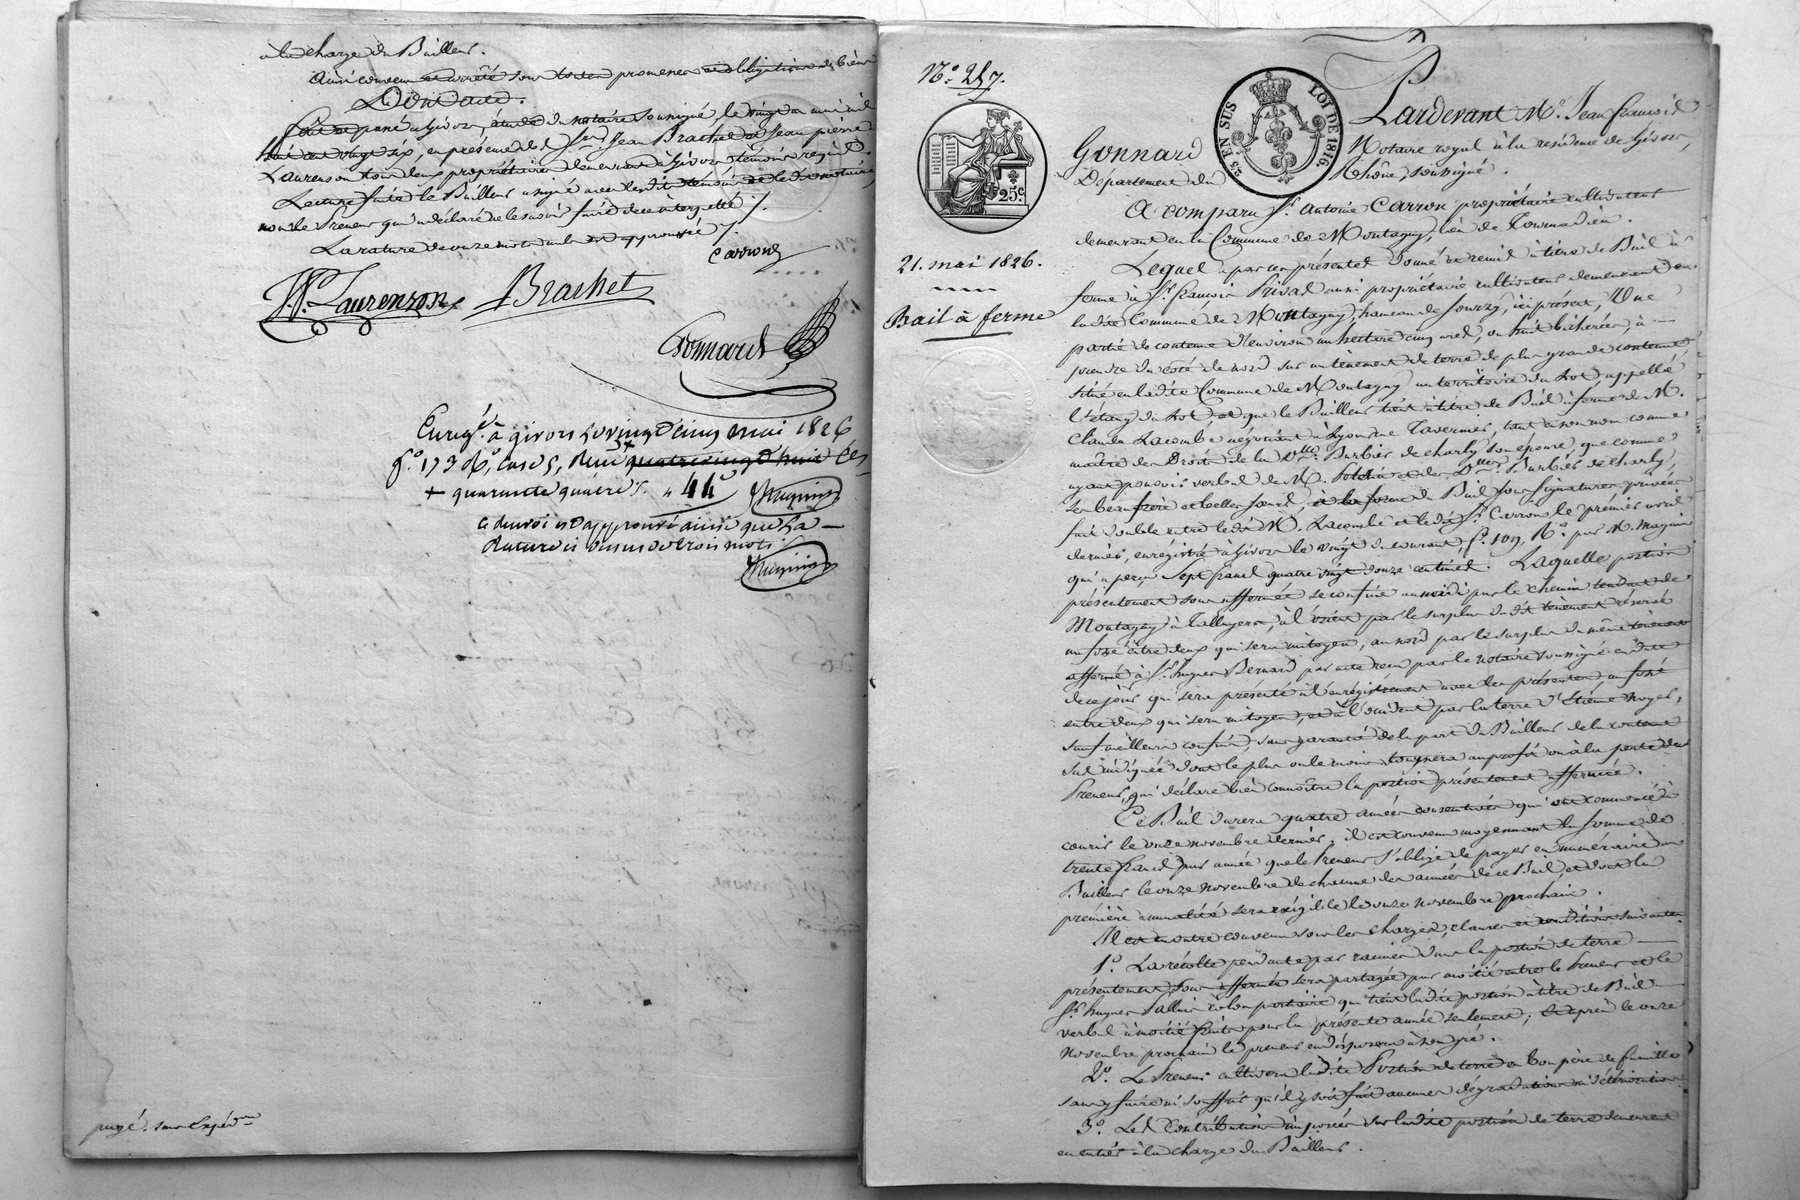 à la charge du Bailleur.
Ainsi convenu et arrêté sous toutes promesses et obligations de biens
Dont acte.
Fait et passé à Givors, étude du notaire soussigné, le vingt un mai mil
huit cent vingt six, en présence des Srs Jean Brachet et Jean pierre
Laurenson tous deux propriétaires demeurant à Givors témoins requis.
Lecture faite le Bailleur a signé avec lesdits témoins et le dit notaire,
non le Preneur qui a déclaré ne le savoir faire de ce interpellé
La rature de onze mots nuls est approuvée
Carron
J.P. Laurenson Brachet
Gonnard
Enregé. à givors le vingt cinq mai 1826
fo. 173 Ro. case 5, Reçu quatre vingt huit ces
+ quarante quatre c. 44
Magnin
ce renvoi est approuvé ainsi que la
Rature ci dessus de trois mots
Magnin
payé. sur Expédon
No. 257.
25 EN SUS
LOI DE 1816.
25c
Pardevant Me. Jean François
Gonnard Notaire royal à la résidence de Givors,
Département du Rhône, soussigné.
A comparu Sr. Antoine Carron propriétaire cultivateur
demeurant en la Commune de Montagny, lieu de Fournadieu.
21. mai 1826.
Bail à ferme
Lequel a par ces présentes donné et remis à titre de Bail à
ferme à Sr. François Privat aussi propriétaire cultivateur demeurant en
ladite Commune de Montagny, hameau de Sourzy, ici présent, Une
partie de contenue d'environ un hectare cinq ares, ou huit bicherées, à
prendre du côté de nord sur un tènement de terre de plus grande contenue
situé en ladite Commune de Montagny au territoire du Sot appellé
l'étang du Sot et que le Bailleur tient à titre de Bail à ferme de M.
Claude Lacombe négociant à Lyon rue Tavernes, tant à son nom comme
maître des Droits de la Dlle Burbier de charly son épouse que comme
ayant pouvoir verbal de M. et des Dlles Burbier de charly,
ses beau frère et belles soeurs, à la forme du Bail sous signatures privées
fait double entre ledit M. Lacombe et ledit Sr. Carron le premier avril
dernier, enregistré à Givors le vingt du courant fo. 109, Ro. par M. Magnin
qui a perçu sept francs quatre vingt douze centimes. Laquelle portion
présentement sous affermée se confine au midi par le chemin tendant de
Montagny à Talluyers, à l'orient par le surplus dudit tènement réservé
un fossé entre deux qui sera mitoyen, au nord par le surplus du même tènement
affermé à Sr. hugues Bernard par acte reçu par le notaire soussigné en date
de ce jour qui sera présenté à l'enregistrement avec les présentes, un fossé
entre deux qui sera mitoyen, et à l'occident par la terre d'Etienne Noyer,
sauf meilleurs confins, sans garantie de la part du Bailleur de la contenue
sus indiquée dont le plus ou le moins tournera au profit ou à la perte du
Preneur, qui déclare bien connoître la portion présentement affermée.
Ce Bail durera quatre années consécutives qui ont commencé à
courir le onze novembre dernier; il est convenu moyennant la somme de
trente francs par année que le Preneur s'oblige de payer en numéraire au
Bailleur le onze novembre de chacune des années de ce Bail, et dont la
première annuité sera exigible le onze novembre prochain.
Il est en outre convenu sous les charges, clauses et conditions suivantes
1o. La récolte pendante par racines dans la portion de terre
présentement sous affermée sera partagée par moitié entre le Preneur et le
Sr. hugues colon partiaire qui tient ladite portion à titre de Bail
verbal à moitié fruits pour la présente année seulement; et après le onze
Novembre prochain le preneur en disposera à son gré.
2o. Le Preneur cultivera ladite Portion de terre en bon père de famille
sans y faire ni souffrir qu'il y soit fait aucunes dégradations ni détériorations
3o. Les Contributions imposées sur ladite portion de terre demeurent
en entier à la charge du Bailleur.